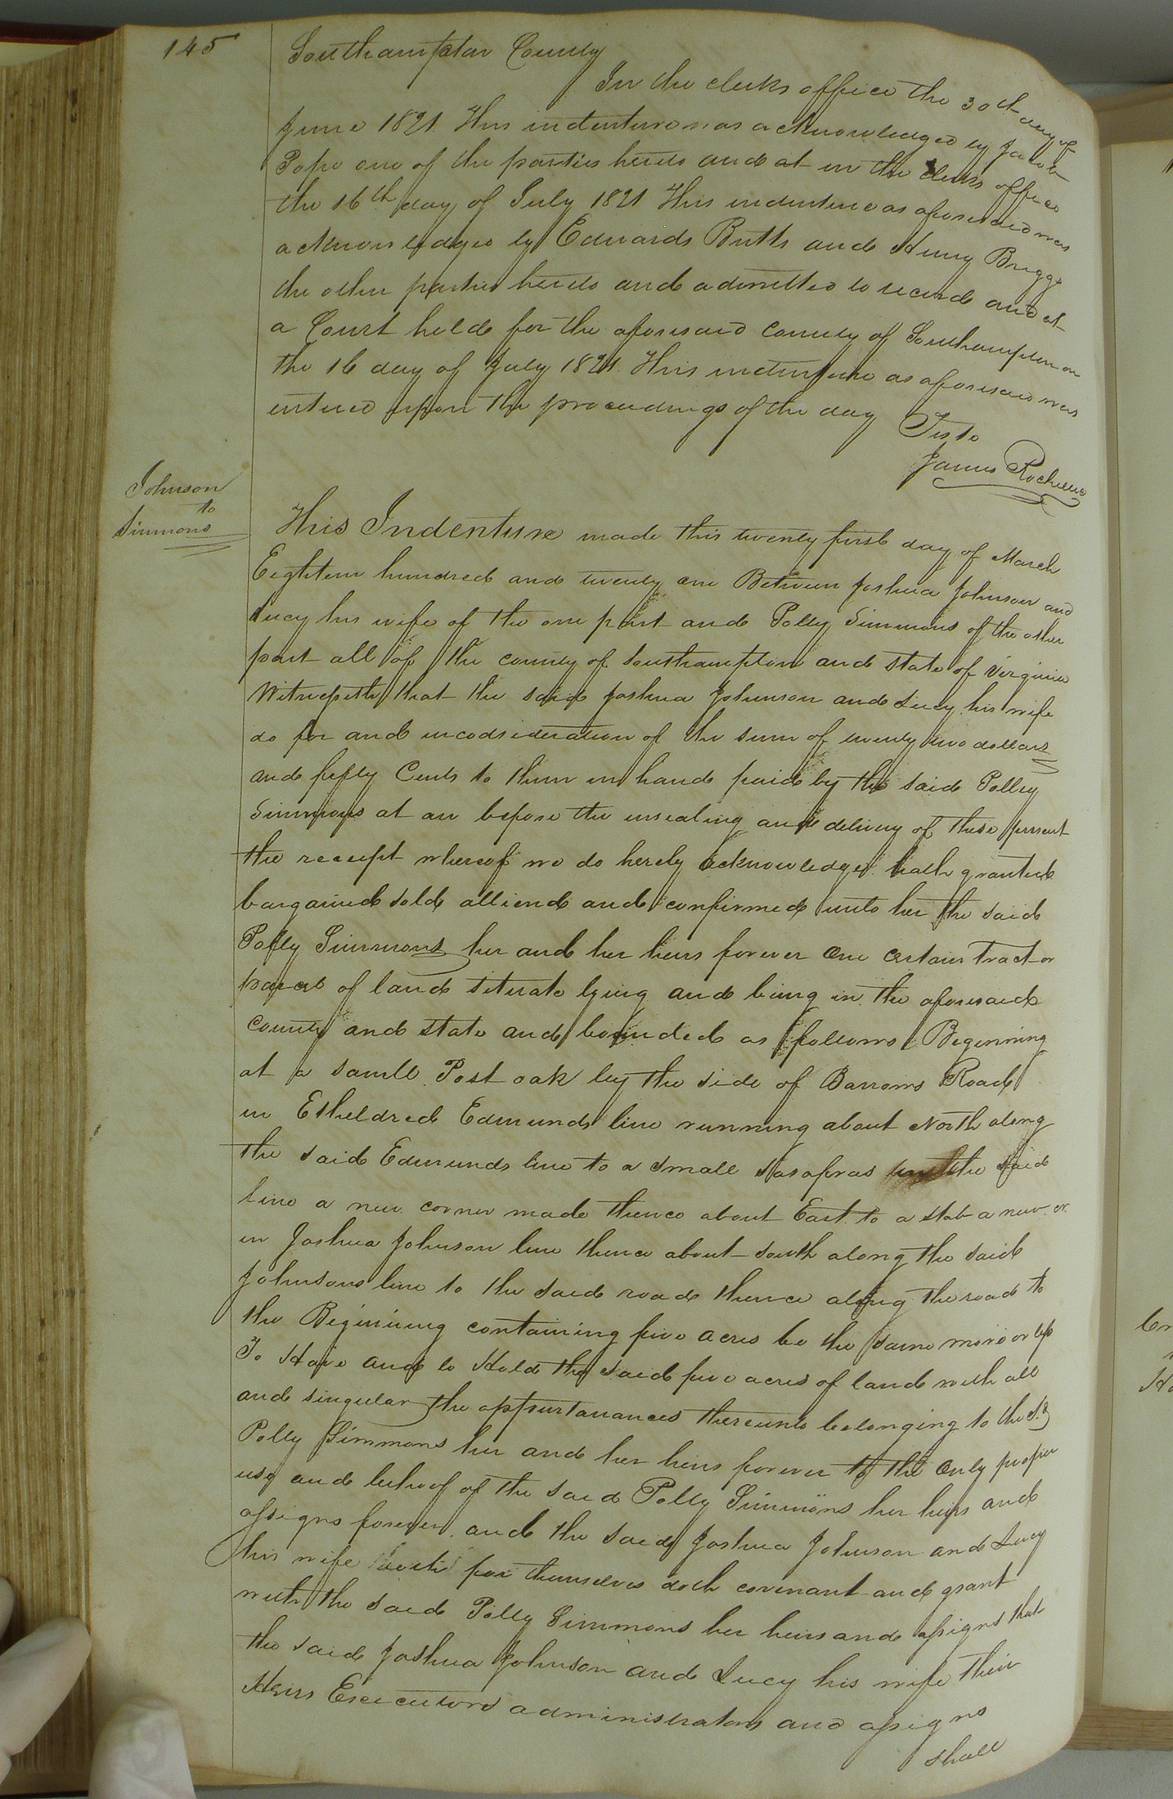 145
Southampton County
In the clerks office the 30th day of
June 1821 This indenture was acknowledged by Jacob
Pope one of the parties hereto and at in the clerks office
the 16th day of July 1821 This indenture as aforesaid was
acknowledged by Edwards Butts and Henry Briggs
the other parties hereto and admitted to record and at
a Court held for the aforesaid county of Southampton on
the 16 day of July 1821 This indenture as aforesaid was
entered upon the proceedings of the day
Teste
James Rochelle
Johnson
to
Simmons
This Indenture made this twenty first day of March
Eighteen hundred and twenty one Between Joshua Johnson and
Lucy his wife of the one part and Polly Simmons of the other
part all of the county of Southampton and state of Virginia
Witnesseth that the said Joshua Johnson and Lucy his wife
do for and inconsideration of the sum of twenty two dollars
and fifty Cents to them in hand paid by the said Polley
Simmons at an before the ensealing and delivery of these present
the receipt whereof we do hereby acknowledges hath granted
bargained sold alliend and confirmed unto her the said
Polly Simmons her and her heirs forever One certain tract or
parcel of land situate lying and being in the aforesaid
county and state and bounded as follows Beginning
at a samll Post oak by the side of Barrows Road
in Etheldred Edmunds line running about North along
the said Edmunds line to a small sasafras the said
line a new corner made thence about East to a stob a new cr
in Joshua Johnson line thence about south along the said
Johnsons line to the said road thence along the road to
the Beginning containing five acres be the same more or less
To Have and to Hold the said five acres of land with all
and singular the appurtanances thereunto belonging to the sd
Polly Simmons her and her heirs forever to the only proper
use and behoof of the said Polly Simmons her heirs and
assigns forever and the said Joshua Johnson and Lucy
his wife for themselves doth covenant and grant
with the said Polly Simmons her heirs and assigns that
the said Joshua Johnson and Lucy his wife their
Heirs Executors administrators and assigns
shall